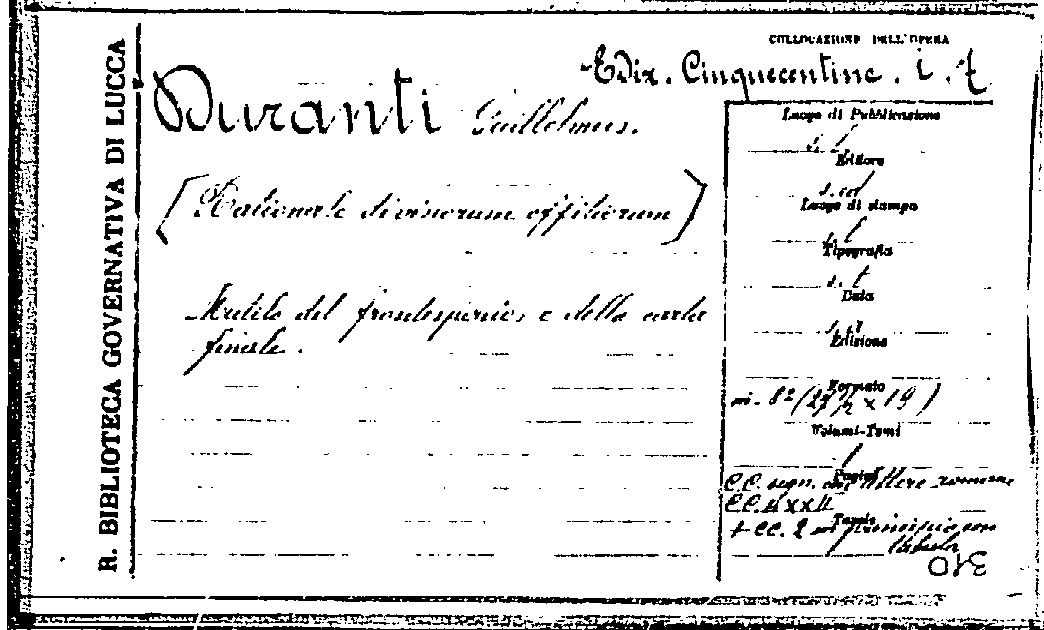 R. BIBLIOTECA GOVERNATIVA DI LUCCA
COLLOCAZIONE DELL'OPERA
Ediz. Cinquecentine. i. 7
Duranti Guillelmus.
[Rationale divinorum offitiorum]
Mutilo del frontespizio, e della carta
finale.
Luogo di Pubblicazione
s. l.
Editore
s. ed
Luogo di stampa
s. l
Tipografia
s. t
Data
Edizione
Formato
in-8º (27½ x 19)
Volumi-Tomi
1
Pagine
CC. segn. con lettere romane
Tavole
+ CC. 2 in principio con
310